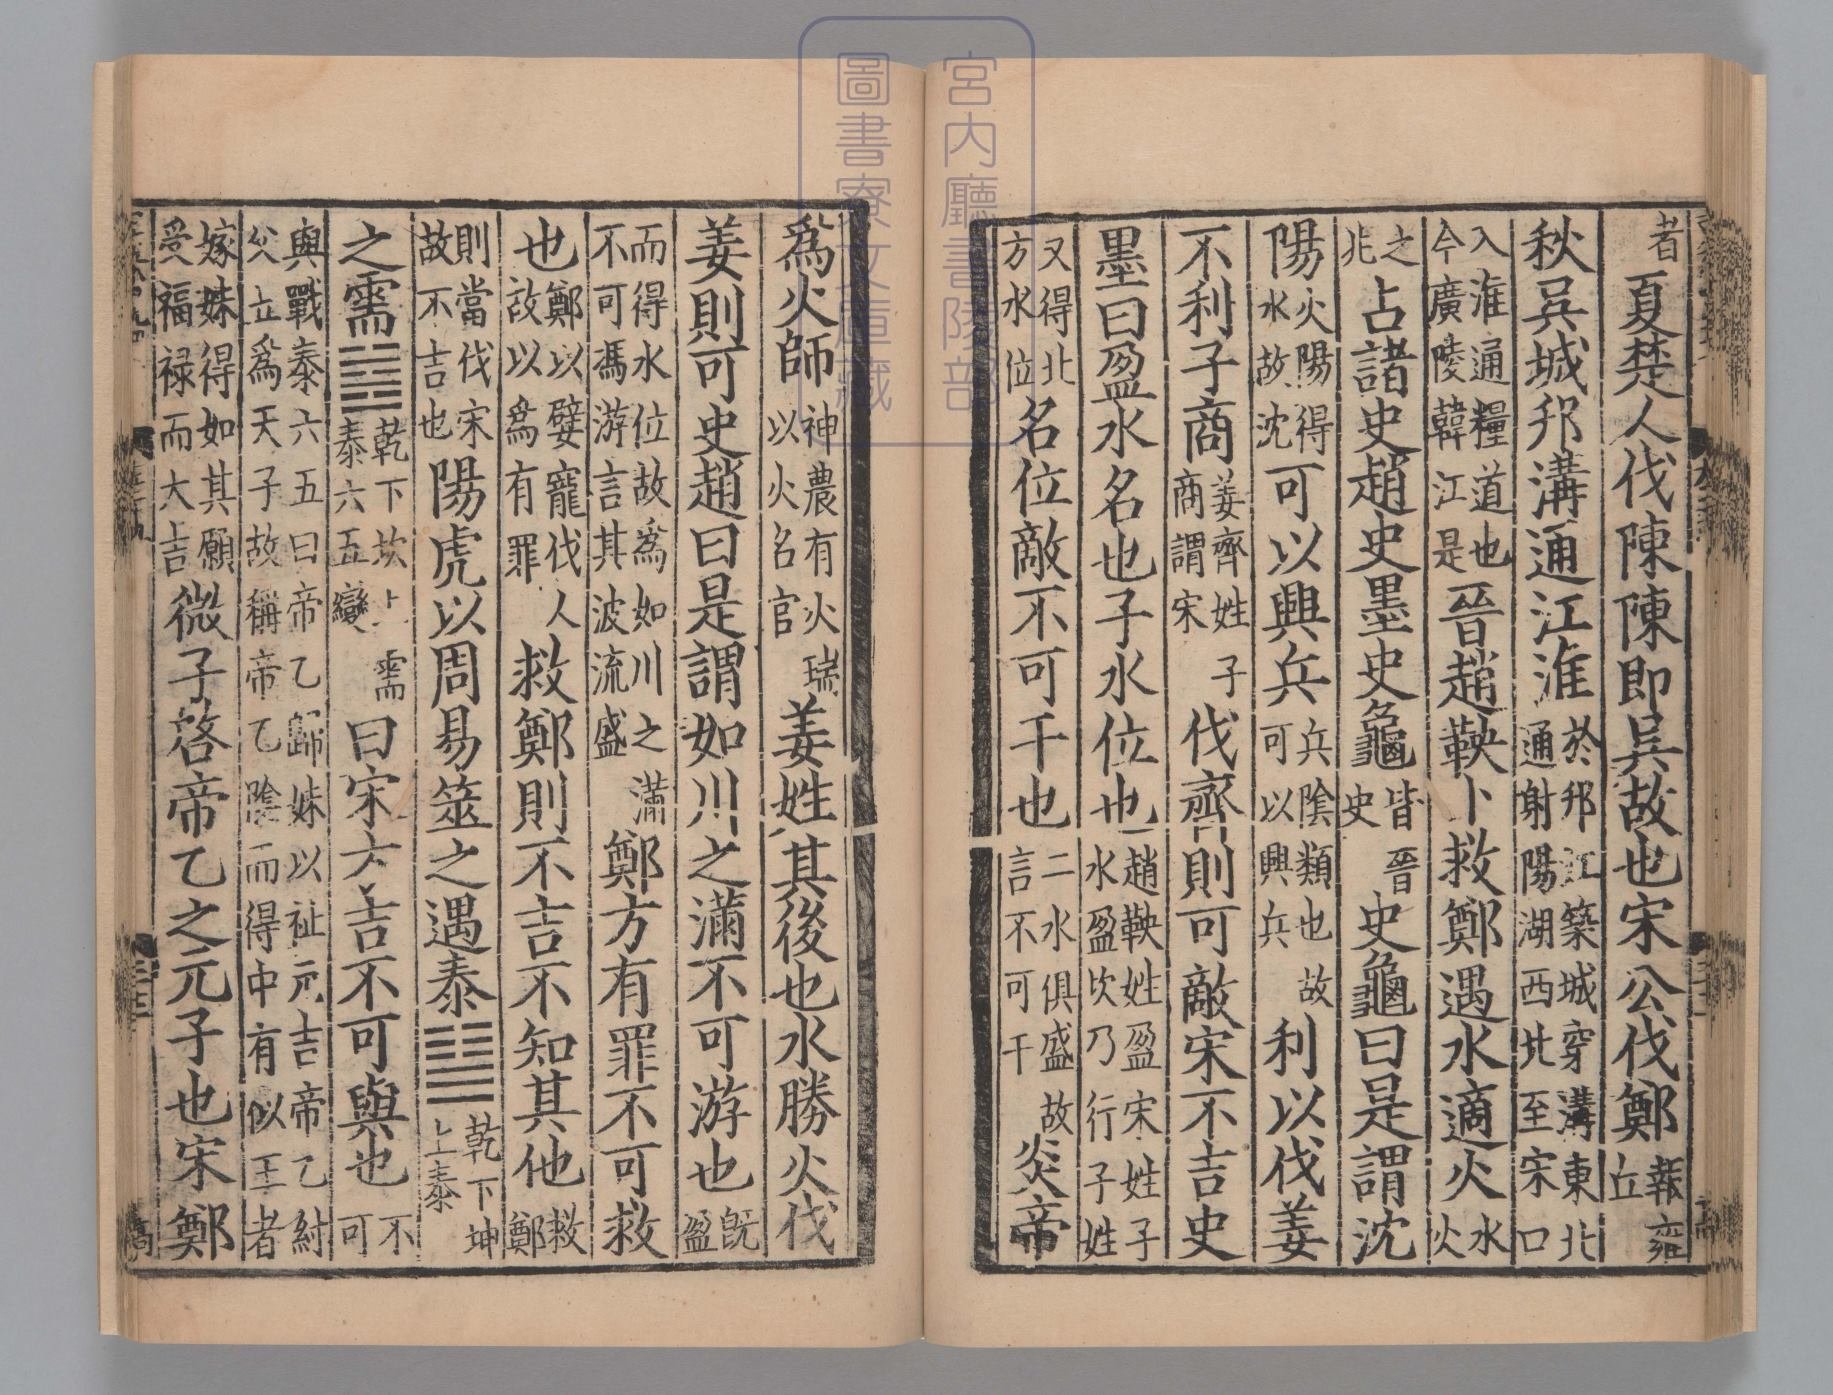 者夏楚人伐陳陳即吳故也宋公伐鄭報雍丘
秋吳城邗溝通江淮於邗江築城穿溝東北通射陽湖西北至宋口
入淮通糧道也今廣陵韓江是晉趙鞅卜救鄭遇水適火水火
之兆占諸史趙史墨史龜皆晉史史龜曰是謂沈
陽火陽得水故沈可以興兵兵陰類也故可以興兵利以伐姜
不利子商姜齊姓子商謂宋伐齊則可敵宋不吉史
墨曰盈水名也子水位也趙鞅姓盈宋姓子水盈坎乃行子姓
又得北方水位名位敵不可干也二水俱盛故言不可干炎帝
爲火師神農有火瑞以火名官姜姓其後也水勝火伐
姜則可史趙曰是謂如川之滿不可游也旣盈
而得水位故爲如川之滿不可馮游言其波流盛鄭方有罪不可救
也鄭以嬖寵伐人故以爲有罪救鄭則不吉不知其他救鄭
則當伐宋故不吉也陽虎以周易筮之遇泰䷊乾下坤上泰
之需䷄乾下坎上需泰六五變曰宋方吉不可與也不可
與戰泰六五曰帝乙歸妹以祉元吉帝乙紂父立爲天子故稱帝乙陰而得中有似王者
嫁妹得如其願受福禄而大吉微子啓帝乙之元子也宋鄭
宮内廳書陵部
圖書寮文庫藏